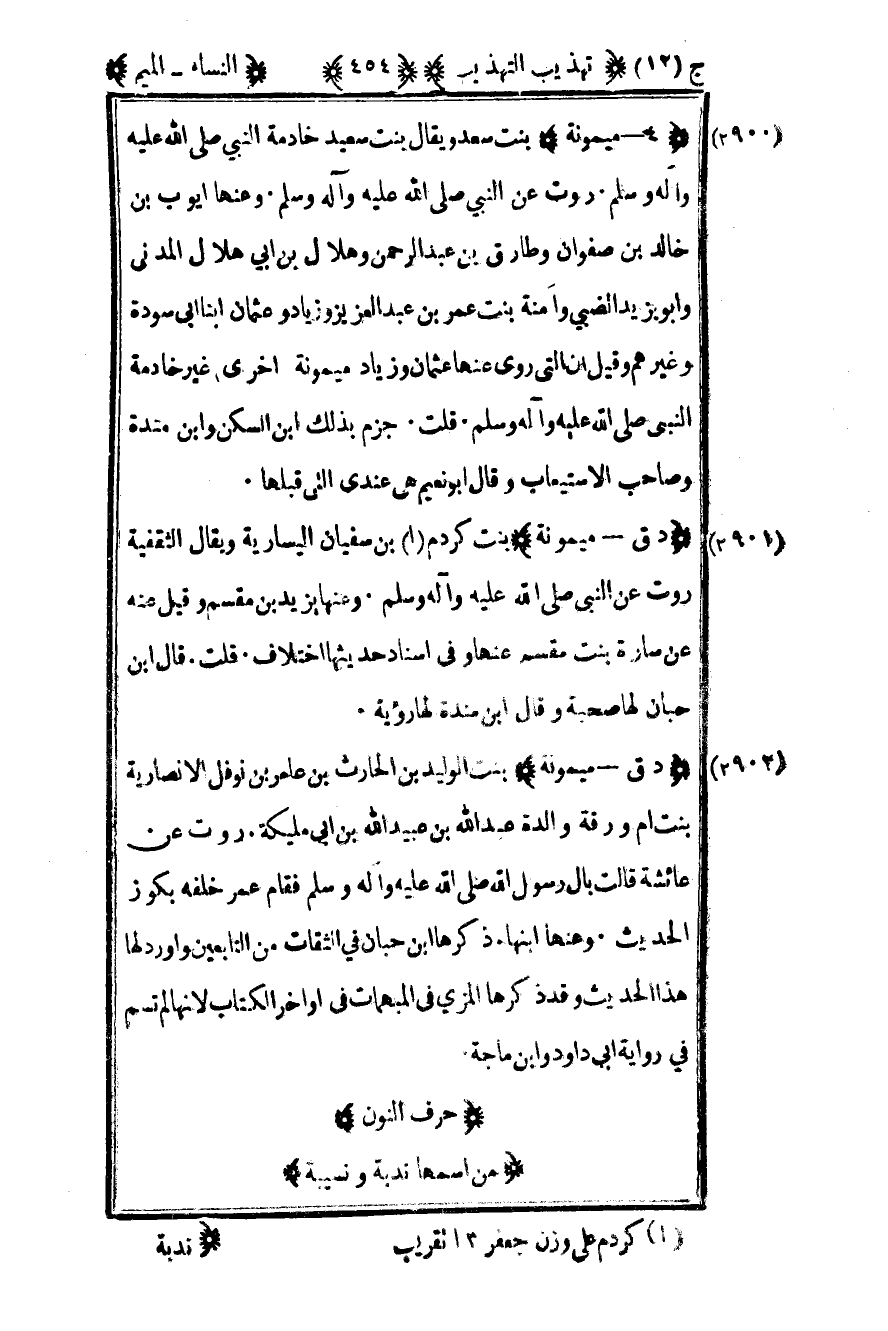 ج (١٢) ﴿ تهذيب التهذيب ﴾ ﴿ ٤٥٤ ﴾ ﴿ النساء ـ الميم ﴾
(٢٩٠٠) ﴿ ٤ — ميمونة ﴾ بنت سعد ويقال بنت سعيد خادمة النبي صلى الله عليه
وآله وسلم · روت عن النبي صلى الله عليه وآله وسلم · وعنها ايوب بن
خالد بن صفوان وطارق بن عبدالرحمن وهلال بن ابي هلال المدنى
وابويزيد الضبي وآمنة بنت عمر بن عبدالعزيز وزياد وعثمان ابنا ابى سودة
وغيرهم وقيل ان التى روى عنها عثمان وزياد ميمونة اخرى غير خادمة
النبى صلى الله عليه وآله وسلم · قلت · جزم بذلك ابن السكن وابن مندة
وصاحب الاستيعاب وقال ابونعيم هى عندى التى قبلها ·
(٢٩٠١) ﴿ د ق — ميمونة ﴾ بنت كردم (١) بن سفيان اليسارية ويقال الثقفية
روت عن النبى صلى الله عليه وآله وسلم · وعنها يزيد بن مقسم وقيل عنه
عن سارة بنت مقسم عنها وفى اسناد حديثها اختلاف · قلت · قال ابن
حبان لها صحبة وقال ابن مندة لها رؤية ·
(٢٩٠٢) ﴿ د ق — ميمونة ﴾ بنت الوليد بن الحارث بن عامر بن نوفل الانصارية
بنت ام ورقة والدة عبدالله بن عبيدالله بن ابى مليكة · روت عن
عائشة قالت بال رسول الله صلى الله عليه وآله وسلم فقام عمر خلفه بكوز
الحديث · وعنها ابنها · ذكرها ابن حبان في الثقات من التابعين واورد لها
هذا الحديث وقد ذكرها المزي فى المبهمات فى اواخر الكتاب لانها لم تسم
في رواية ابى داود وابن ماجة ·
﴿ حرف النون ﴾
﴿ من اسمها ندبة و نسيبة ﴾
(١) كردم على وزن جعفر ١٢ تقريب
﴿ ندبة